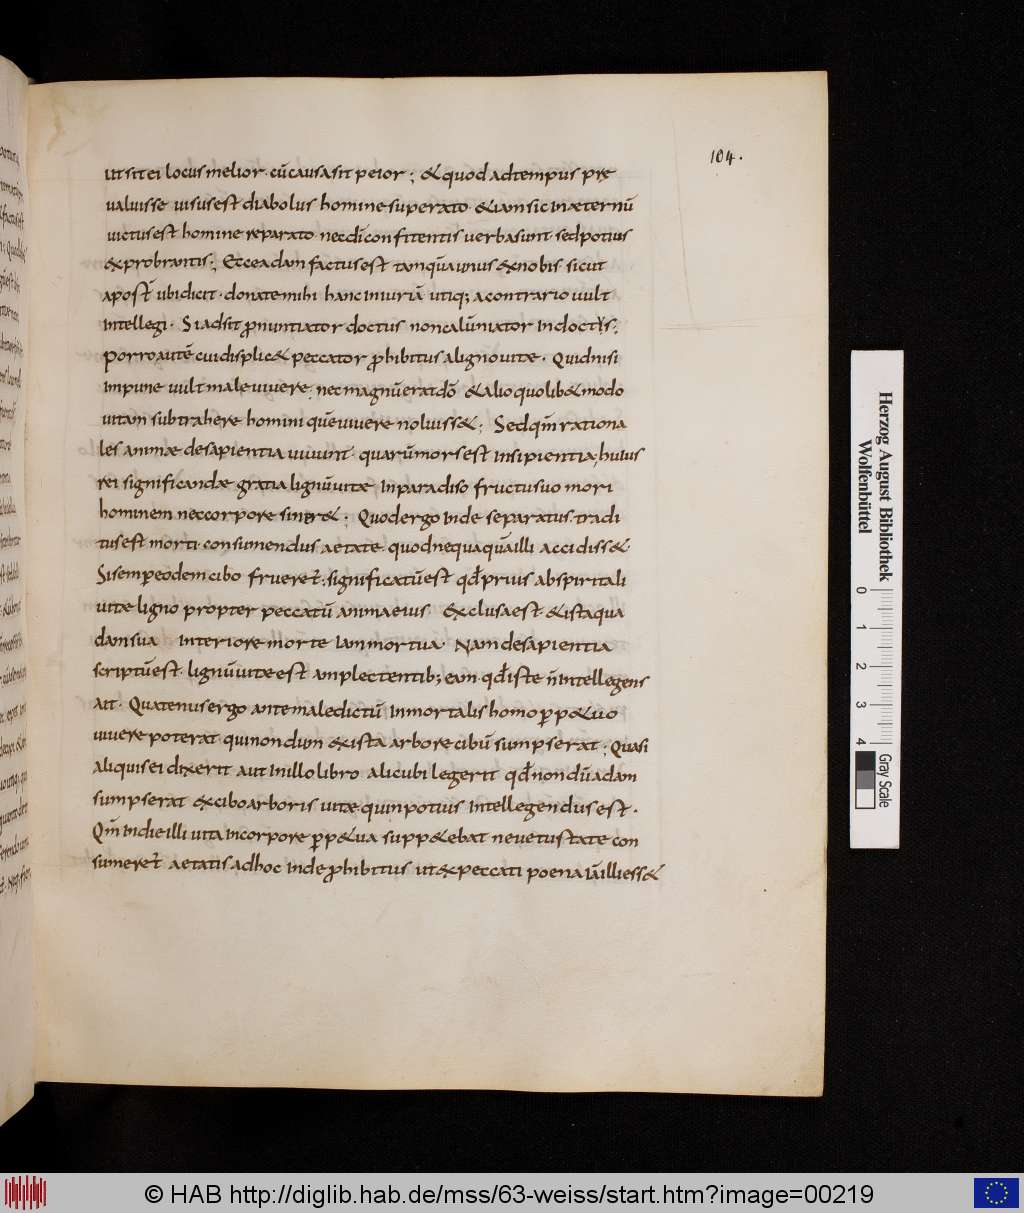 104.
ut sit ei locus melior· cū causa sit peior; & quod ad tempus prę
ualuisse uisus est diabolus homine superato· & iam sic in æternū
uictus est homine reparato· nec dī confitentis uerba sunt· sed potius
exprobrantis; Ecce adam factus est tanquā unus ex nobis sicut
apost̄ ubi dicit· donate mihi hanc iniuriā utiq; a contrario uult
intellegi· Si adsit pronuntiator doctus non calūniator indoctus;
Porro autē cui displic& peccator prohibitus a ligno uitæ· Quid nisi
impune uult male uiuere; nec magnū erat dō & alio quolib& modo
uitam subtrahere homini quē uiuere noluiss&; Sed qm̄ rationa
les animæ de sapientia uiuunt· quarū mors est insipientia; huius
rei significandæ gratia lignū uitæ in paradiso fructu suo mori
hominem nec corpore siner&; Quod ergo inde separatus· tradi
tus est morti· consumendus aetate quod nequaquā illi accidiss&
Si semper eodem cibo frueret̄; significatū est qđ prius ab spiritali
uitæ ligno propter peccatū anima eius exclusa est & ista qua
dam sua interiore morte iam mortua· Nam de sapientia
scriptū est· lignū uitæ est amplectentib; eam· qđ iste n̄ intellegens
ait· Quatenus ergo ante maledictū inmortalis homo perp&uo
uiuere poterat qui nondum ex ista arbore cibū sumpserat; Quasi
aliquis ei dixerit aut in illo libro alicubi legerit qđ nondū adam
sumpserat ex cibo arboris uitæ quin potius intellegendus est·
Qm̄ indie illi uita in corpore perp&ua supp&ebat ne uetustate con
sumeret̄ aetatis adhoc inde prohibitus ut ex peccati poena iā illi ess&
Herzog August Bibliothek
Wolfenbüttel
0 1 2 3 4
Gray Scale
© HAB http://diglib.hab.de/mss/63-weiss/start.htm?image=00219